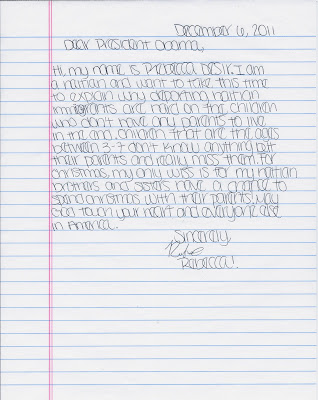 December 6, 2011
Dear President Obama,
Hi, my name is Rebecca Desir. I am
a haitian and want to take this time
to explain why deporting haitian
immigrants are hard on the children
who don't have any parents to live
in the end. Children that are the ages
between 3-7 don't know anything but
their parents and really miss them. For
christmas, my only wiss is for my haitian
brothers and sisters have a chance to
spend christmas with their parents. May
God touch your heart and everyone else
in America.
Sincerely,
Rebecca!